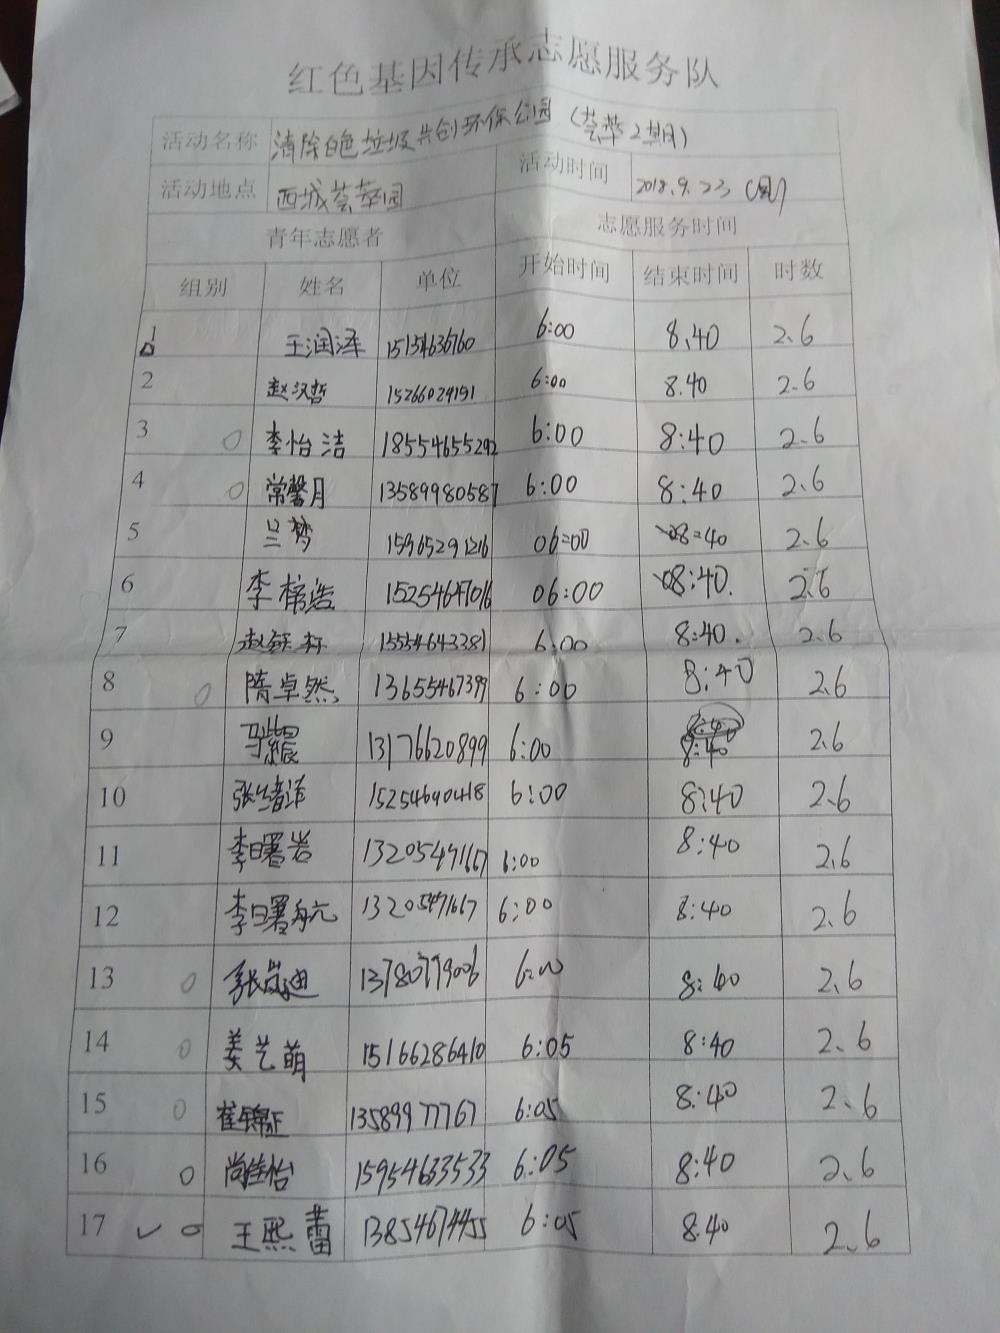 红色基因传承志愿服务队
活动名称 清除白色垃圾共创环保公园（荟萃2期）
活动地点 西城荟萃园 活动时间 2018.9.23（周）
青年志愿者 志愿服务时间
组别 姓名 单位 开始时间 结束时间 时数
1 王润泽 15154636760 6:00 8.40 2.6
2 赵汉哲 15266024151 6:00 8.40 2.6
3 李怡洁 18554655292 6:00 8:40 2.6
4 常馨月 13589980587 6:00 8:40 2.6
5 兰梦 15965291216 06:00 08:40 2.6
6 李 15254647016 06:00 08:40. 2.6
7 赵钰 15554643381 6:00 8:40. 2.6
8 隋卓然 13655467399 6:00 8:40 2.6
9 马 13176620899 6:00 8:40 2.6
10 张绪洋 15254690418 6:00 8:40 2.6
11 李曙岩 13205471667 6:00 8:40 2.6
12 李曙航 13205471667 6:00 8:40 2.6
13 张岚迪 13780779006 6:00 8:40 2.6
14 姜艺萌 15166286410 6:05 8:40 2.6
15 崔锦正 13589977767 6:05 8:40 2.6
16 尚佳怡 15954633533 6:05 8:40 2.6
17 王熙蕾 13854674455 6:05 8:40 2.6